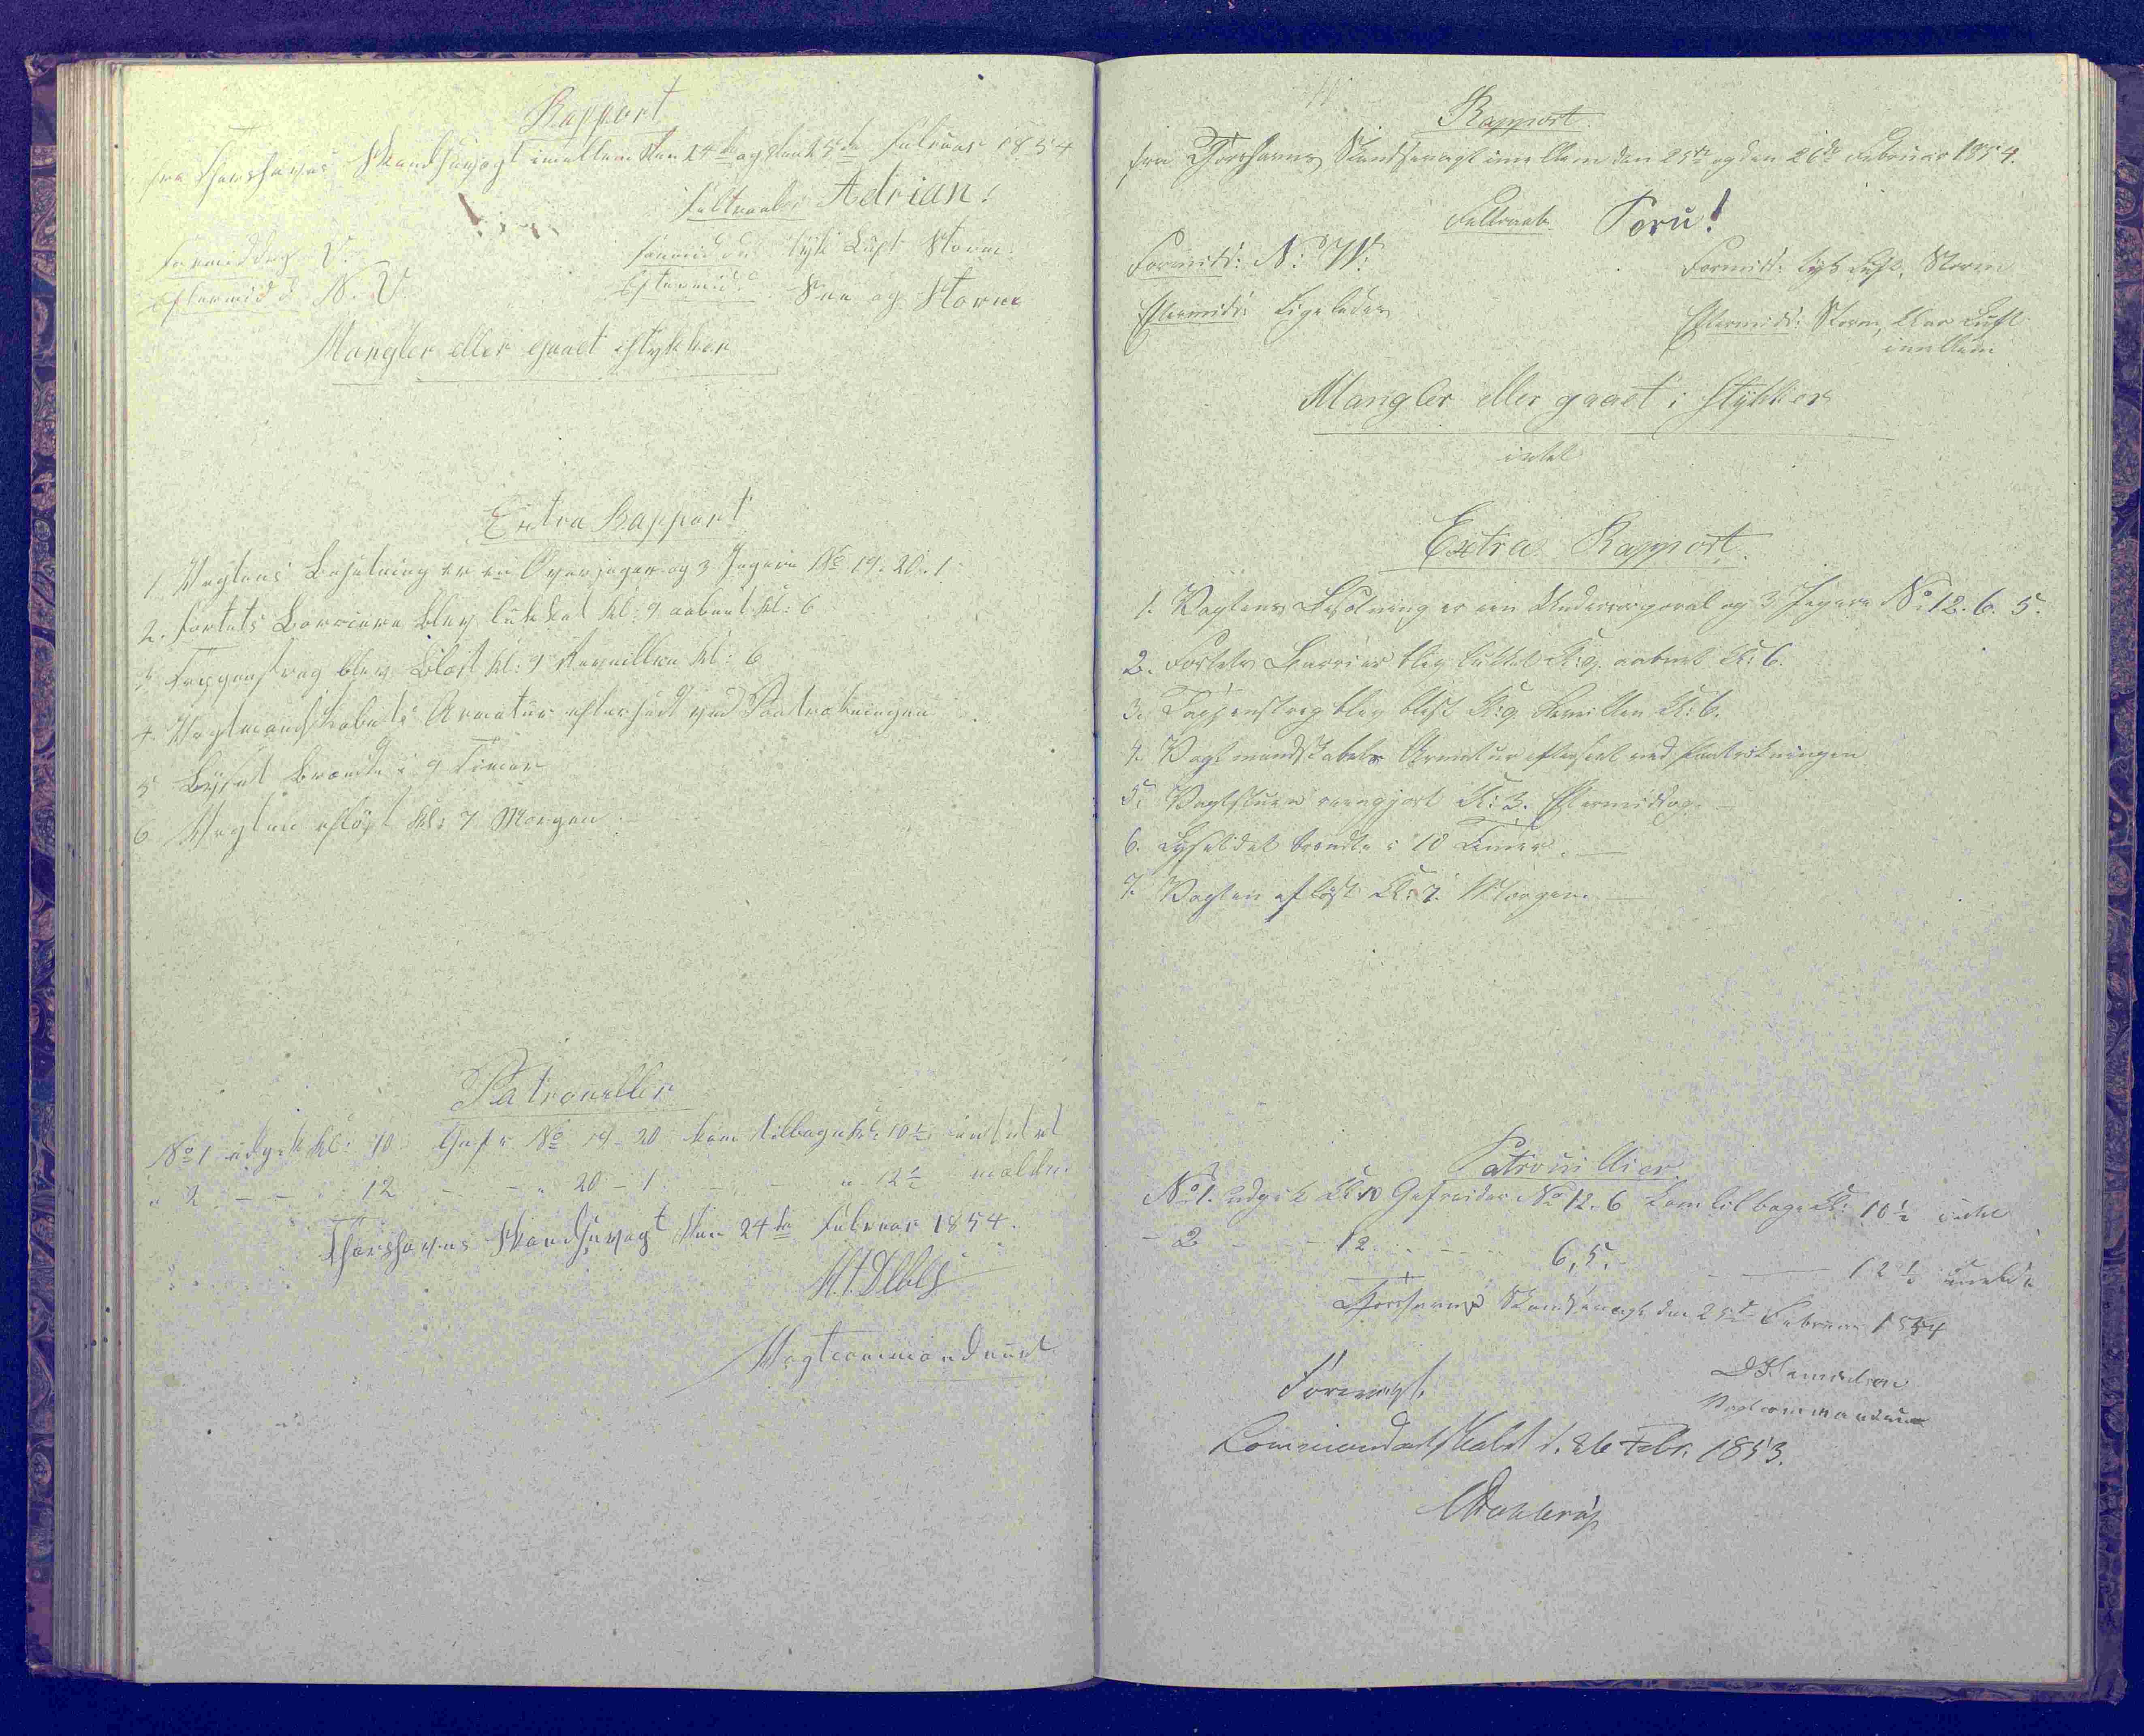 Rapport
fra Thorshavns Skandsevagt imellem den 24de og den 25de Februar 1854
Feltraab: Adrian!
Formiddag V.
Formidd: tyk Luft Storm
Eftermidd N. V.
Eftermidd Snee og Storm
Mangler eller gaaet i Stykker
Extra Rapport
1. Vagtens Besætning er en Overjæger og 3 Jægere No 19. 20. 1.
2. Fortets Barriere blev lukket Kl: 9 aabnet Kl: 6
3. Tappenstreg blev blæst Kl: 9 Reveillen Kl: 6
4. Vagtmandskabets Armatur efterseet ved Paatrækningen
5 Lyset brændte i 9 Timer
6 Vagten afløst Kl: 7 Morgen
Patrouiller
No 1 udgik Kl: 10 Gefr No 19-20 kom tilbage Kl: 10½ intet at
" 2 - - 12 - - " 20-1 - - " 12½ melde.
Thorshavns Skandsevagt den 24de Februar 1854.
Vagtcommandeur
Rapport.
fra Thorshavns Skandsevagt imellem den 25de og den 26de Februar 1854.
Feltraab Peru!
Formidd: N: W:
Formidd: tyk Luft, Storm
Eftermidd: Ligeledes
Eftermidd: Storm, klar Luft
imellem
Mangler eller gaaet i Stykker
intet
Extra Rapport.
1. Vagtens Besætning er een Undercorporal og 3 Jægere No 12. 6. 5.
2. Fortets Barriere blev lukket Kl: 9. aabnet Kl: 6.
3. Tappenstreg blev blæst Kl: 9. Reveillen Kl: 6.
4. Vagtmandskabets Armatur efterseet ved Paatrækningen
5. Vagtstuen reengjort Kl: 3. Eftermiddag. —
6. Lyset det brændte i 10 Timer. —
7. Vagten afløst Kl: 7. Morgen. —
Patrouiller
No 1. udgik Kl: 10 Gefreider No 12. 6 kom tilbage Kl: 10½ intet
- 2 - - 12 - - 6, 5. - — 12½ melde
Thorshavns Skandsevagt den 25de Februar 1854
Vagtcommandeur
Foreviist.
Commandantskabet d. 26 Febr. 1853.